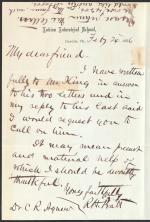 Indian Industrial School,
Carlisle, Pa.
Feby
My dear friend,
I have written
fully to Mr King in answer
to his two letters and in
my reply to his last said
I would request you to
call on him.
It may mean present
and material help of
which I should be devoutly
thankful.
Yours faithfully
R H Pratt
Dr C R Agnew